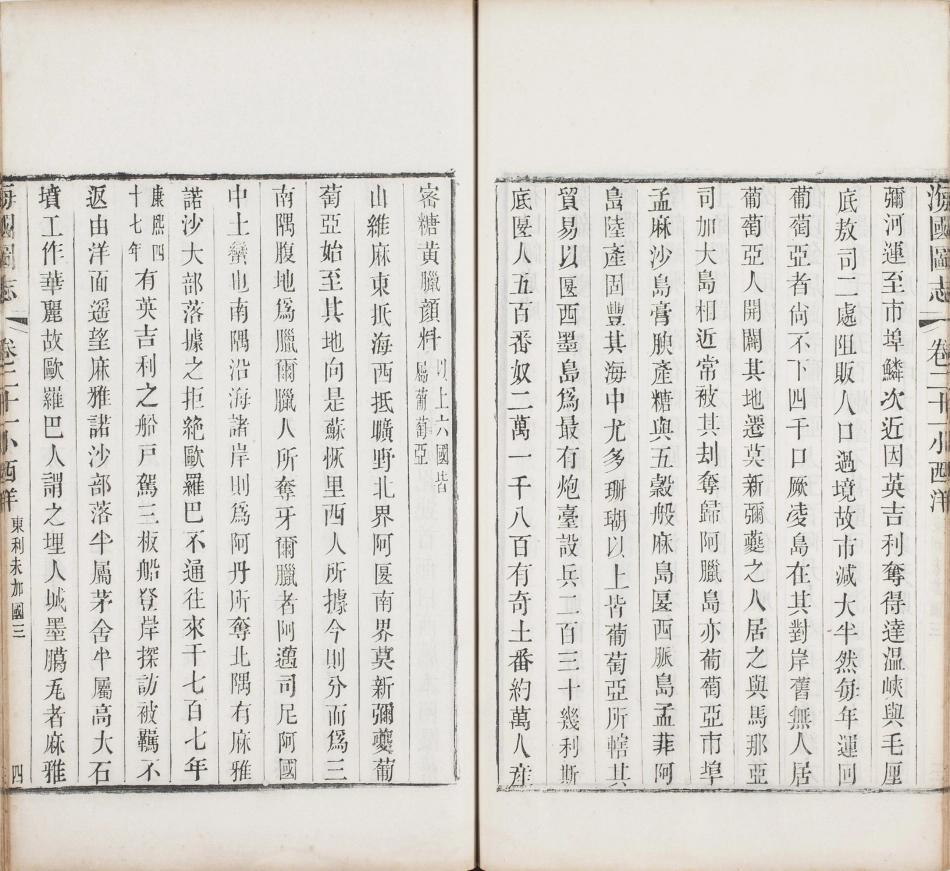 海國圖志 卷二十一 小西洋
彌河運至市埠鱗次近因英吉利奪得達溫峽與毛厘
底敖司二處阻販人口過境故市減大半然每年運回
葡萄亞者尙不下四千口厥凌島在其對岸舊無人居
葡萄亞人開闢其地遷莫新彌夔之人居之與馬那亞
司加大島相近常被其刦奪歸阿臘島亦葡萄亞市埠
孟麻沙島膏腴產糖與五穀般麻島匽西脈島孟菲阿
島陸產固豐其海中尤多珊瑚以上皆葡萄亞所轄其
貿易以匽西墨島爲最有炮臺設兵二百三十幾利斯
底匽人五百番奴二萬一千八百有奇土番約萬人產
密糖黃臘顏料以上六國皆屬葡萄亞
山維麻東抵海西抵曠野北界阿匽南界莫新彌夔葡
萄亞始至其地向是蘇恢里西人所據今則分而爲三
南隅腹地爲臘爾臘人所奪牙爾臘者阿邁司尼阿國
中土蠻也南隅沿海諸岸則爲阿丹所奪北隅有麻雅
諾沙大部落據之拒絕歐羅巴不通往來千七百七年
康熙四十七年有英吉利之船戶駕三板船登岸探訪被羈不
返由洋面遥望麻雅諾沙部落半屬茅舍半屬高大石
墳工作華麗故歐羅巴人謂之埋人城墨臈旡者麻雅
海國圖志 卷二十一 小西洋 東利未加國三 四